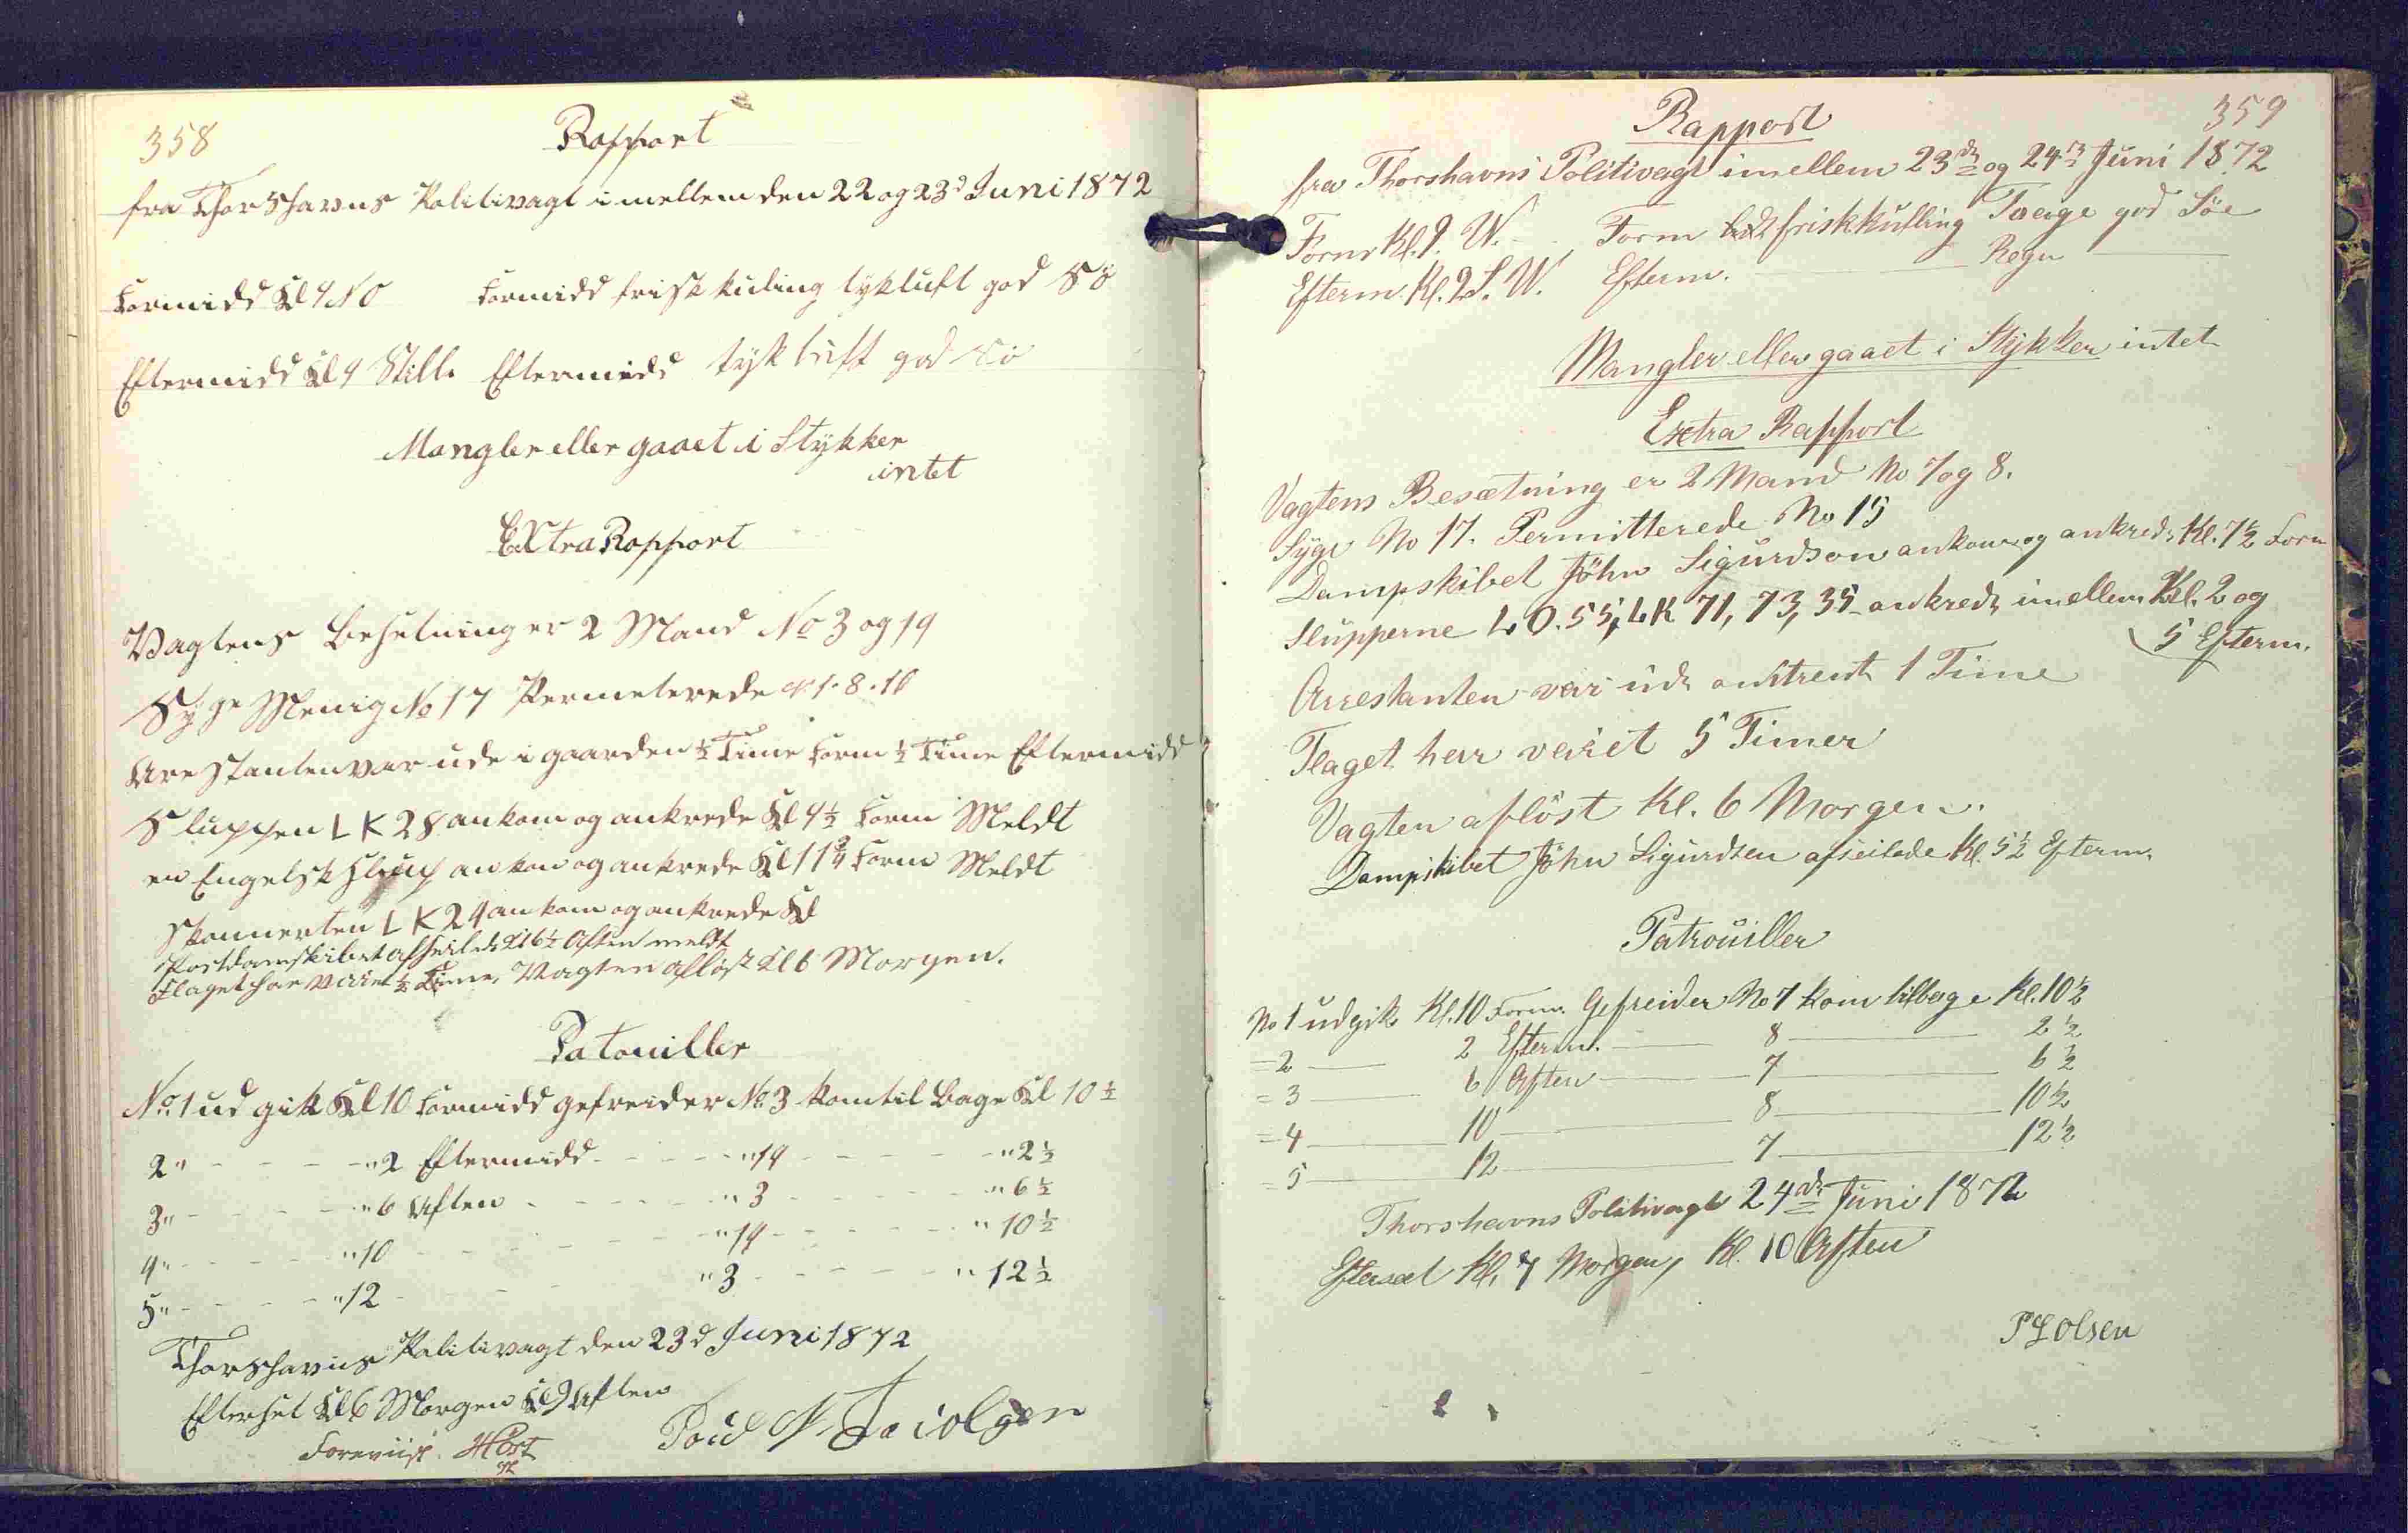 358
Rapport
fra Thorshavns Politivagt imellem den 22 og 23d Juni 1872
Formidd Kl 4 NO Formidd frisk kuling tykluft god Sö
Eftermidd Kl 4 Stille Eftermidd tykluft god Sö
Mangler eller gaaet i Stÿkker
intet
Extra Rapport
Vagtens Besetning er 2 Mand No 3 og 19
Syge Menig No 17 Permeterede 1. 8. 10
Arestanten var ude i gaarden ½ Time Form ½ Time Eftermidd
Sluppen LK 28 ankom og ankrede Kl 4½ Form Meldt
en Engelsk Slup ankom og ankrede Kl 11¾ Form Meldt
Skonnerten LK 24 ankom og ankrede Kl
Postdamskibet afseilede Kl 6½ Aften meldt
Flaget har väret ½ Time, Vagten aflöst Kl 6 Morgen.
Patouiller
No 1 ud gik Kl 10 Formidd gefreider No 3 kom til Bage Kl 10½
2 " - - - - " 2 Eftermidd - - - - " 19 - - - - " 2½
3 " - - - - " 6 Aften - - - - " 3 - - - - " 6½
4 " - - - - " 10 - - - - " 19 - - - - " 10½
5 " - - - - " 12 - - - - " 3 - - - - " 12½
Thorshavns Politivagt den 23d Juni 1872
Efterset Kl 6 Morgen Kl 9 Aften
Foreviist. Höst
359
Rapport
fra Thorshavns Politivagt imellem 23de og 24de Juni 1872
Form Kl. 9. W. Form frisk kulling Taage god Söe
Efterm. Kl. 2 S. W. Efterm. — Regn —
Mangler eller gaaet i Stÿkker intet
Extra Rapport
Vagtens Besætning er 2 Mand No 7 og 8.
Sÿge No 17. Permitterede No 15
Dampskibet Jöhn Sigurdson ankom og ankrede Kl. 7½ Form
Slupperne LO. 55, LK 71, 73, 35 ankrede imellem Kl. 2 og
5 Efterm.
Arrestanten var ude omtrent 1 Time
Flaget har været 5 Timer
Vagten aflöst Kl. 6 Morgen.
Dampskibet Jöhn Sigurdsen afseilede Kl. 5½ Efterm.
Patrouiller
No 1 udgik Kl. 10 Form. Gefreider No 7 kom tilbage Kl. 10½
= 2 — 2 Efterm. — 8 — 2½
= 3 — 6 Aften — 7 — 6½
= 4 — 10 — 8 — 10½
= 5 — 12 — 7 — 12½
Thorshavns Politivagt 24de Juni 1872
Efterset Kl. 7 Morgen, Kl. 10 Aften
Olsen